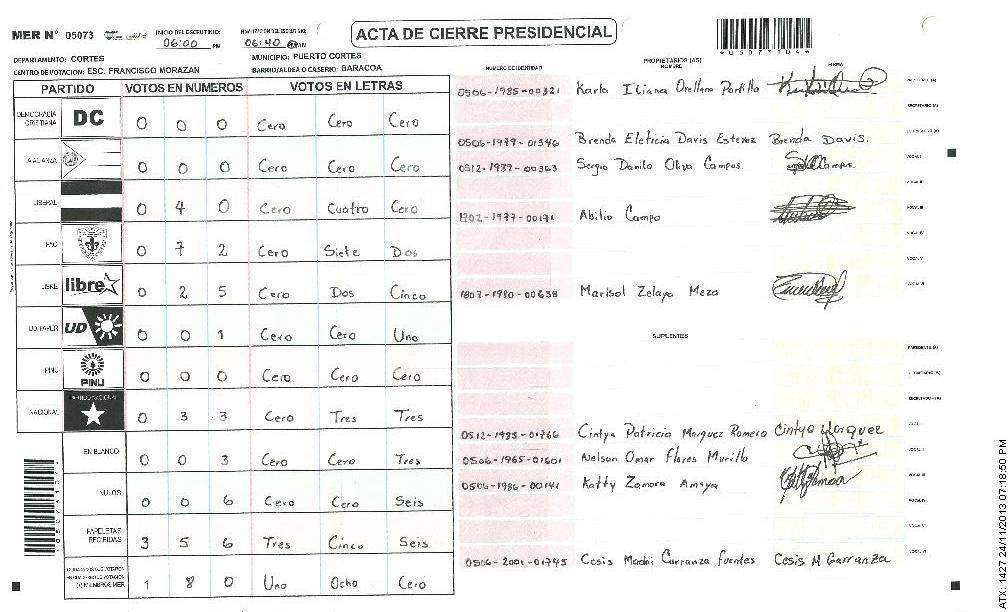 MER N° 05073
INICIO DEL ESCRUTINIO:
06:00 PM
06:40 AM
ACTA DE CIERRE PRESIDENCIAL
DEPARTAMENTO: CORTES
MUNICIPIO: PUERTO CORTES
CENTRO DE VOTACION: ESC. FRANCISCO MORAZAN
BARRIO/ALDEA O CASERIO: BARACOA
PARTIDO VOTOS EN NUMEROS VOTOS EN LETRAS
DEMOCRACIA CRISTIANA DC 0 0 0 Cero Cero Cero
LA ALIANZA 0 0 0 Cero Cero Cero
LIBERAL 0 4 0 Cero Cuatro Cero
PAC 0 7 2 Cero Siete Dos
LIBRE libre 0 2 5 Cero Dos Cinco
UD UD 0 0 1 Cero Cero Uno
PINU PINU 0 0 0 Cero Cero Cero
NACIONAL PARTIDO NACIONAL 0 3 3 Cero Tres Tres
EN BLANCO 0 0 3 Cero Cero Tres
NULOS 0 0 6 Cero Cero Seis
PAPELETAS RECIBIDAS 3 5 6 Tres Cinco Seis
(+) MIEMBROS MER 1 8 0 Uno Ocho Cero
NUMERO DE IDENTIDAD
PROPIETARIOS (AS)
NOMBRE
FIRMA
0506-1985-00321 Karla Iliana Orellana Portillo
0506-1979-01346 Brenda Eleticia Davis Estevez Brenda Davis.
0512-1987-00363 Sergio Danilo Oliva Campos
1702-1977-00171 Abilio Campo
1807-1980-00638 Marisol Zelaya Meza
SUPLENTES
0512-1985-01766 Cintya Patricia Marquez Romero Cintya Marquez
0506-1965-01601 Nelson Omar Flores Murillo
0506-1986-00141 Katty Zamora Amaya
0506-2001-01745 Cesis Madai Carranza fuentes Cesis M Carranza
ATX: 1427 24/11/2013 07:18:50 PM